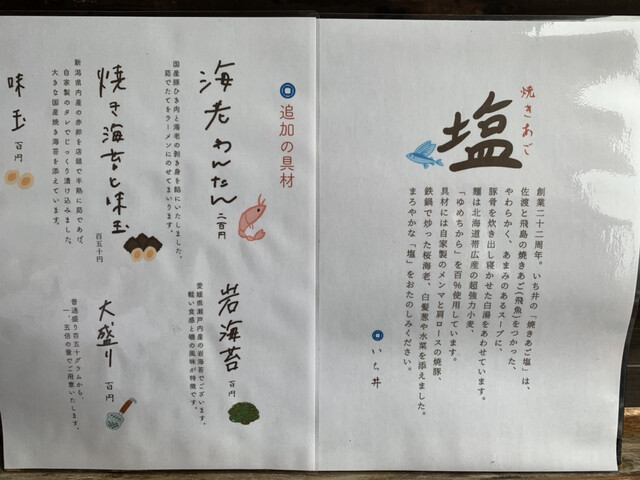 焼きあご
塩
創業二十二周年。いち井の「焼きあご塩」は、
佐渡と飛島の焼きあご(飛魚)をつかった、
やわらかく、あまみのあるスープに、
豚骨を炊き出し寝かせた白湯をあわせています。
麺は北海道帯広産の超強力小麦、
「ゆめちから」を百%使用しています。
具材には自家製のメンマと肩ロースの焼豚、
鉄鍋で炒った桜海老、白髪葱や水菜を添えました。
まろやかな「塩」をおたのしみください。
いち井
追加の具材
海老わんたん
二百円
国産豚ひき肉と海老の剥き身を餡にいたしました。
茹でたてをラーメンにのせてまいります。
岩海苔
百円
愛媛県瀬戸内産の岩海苔でございます。
軽い食感と磯の風味が特徴です。
焼き海苔と味玉
百五十円
新潟県内産の赤卵を店舗で半熟に茹であげ、
自家製のタレでじっくり漬け込みました。
大きな国産焼き海苔を添えています。
大盛り
百円
普通盛り百五十グラムから、
一、五倍の量でご用意いたします。
味玉
百円